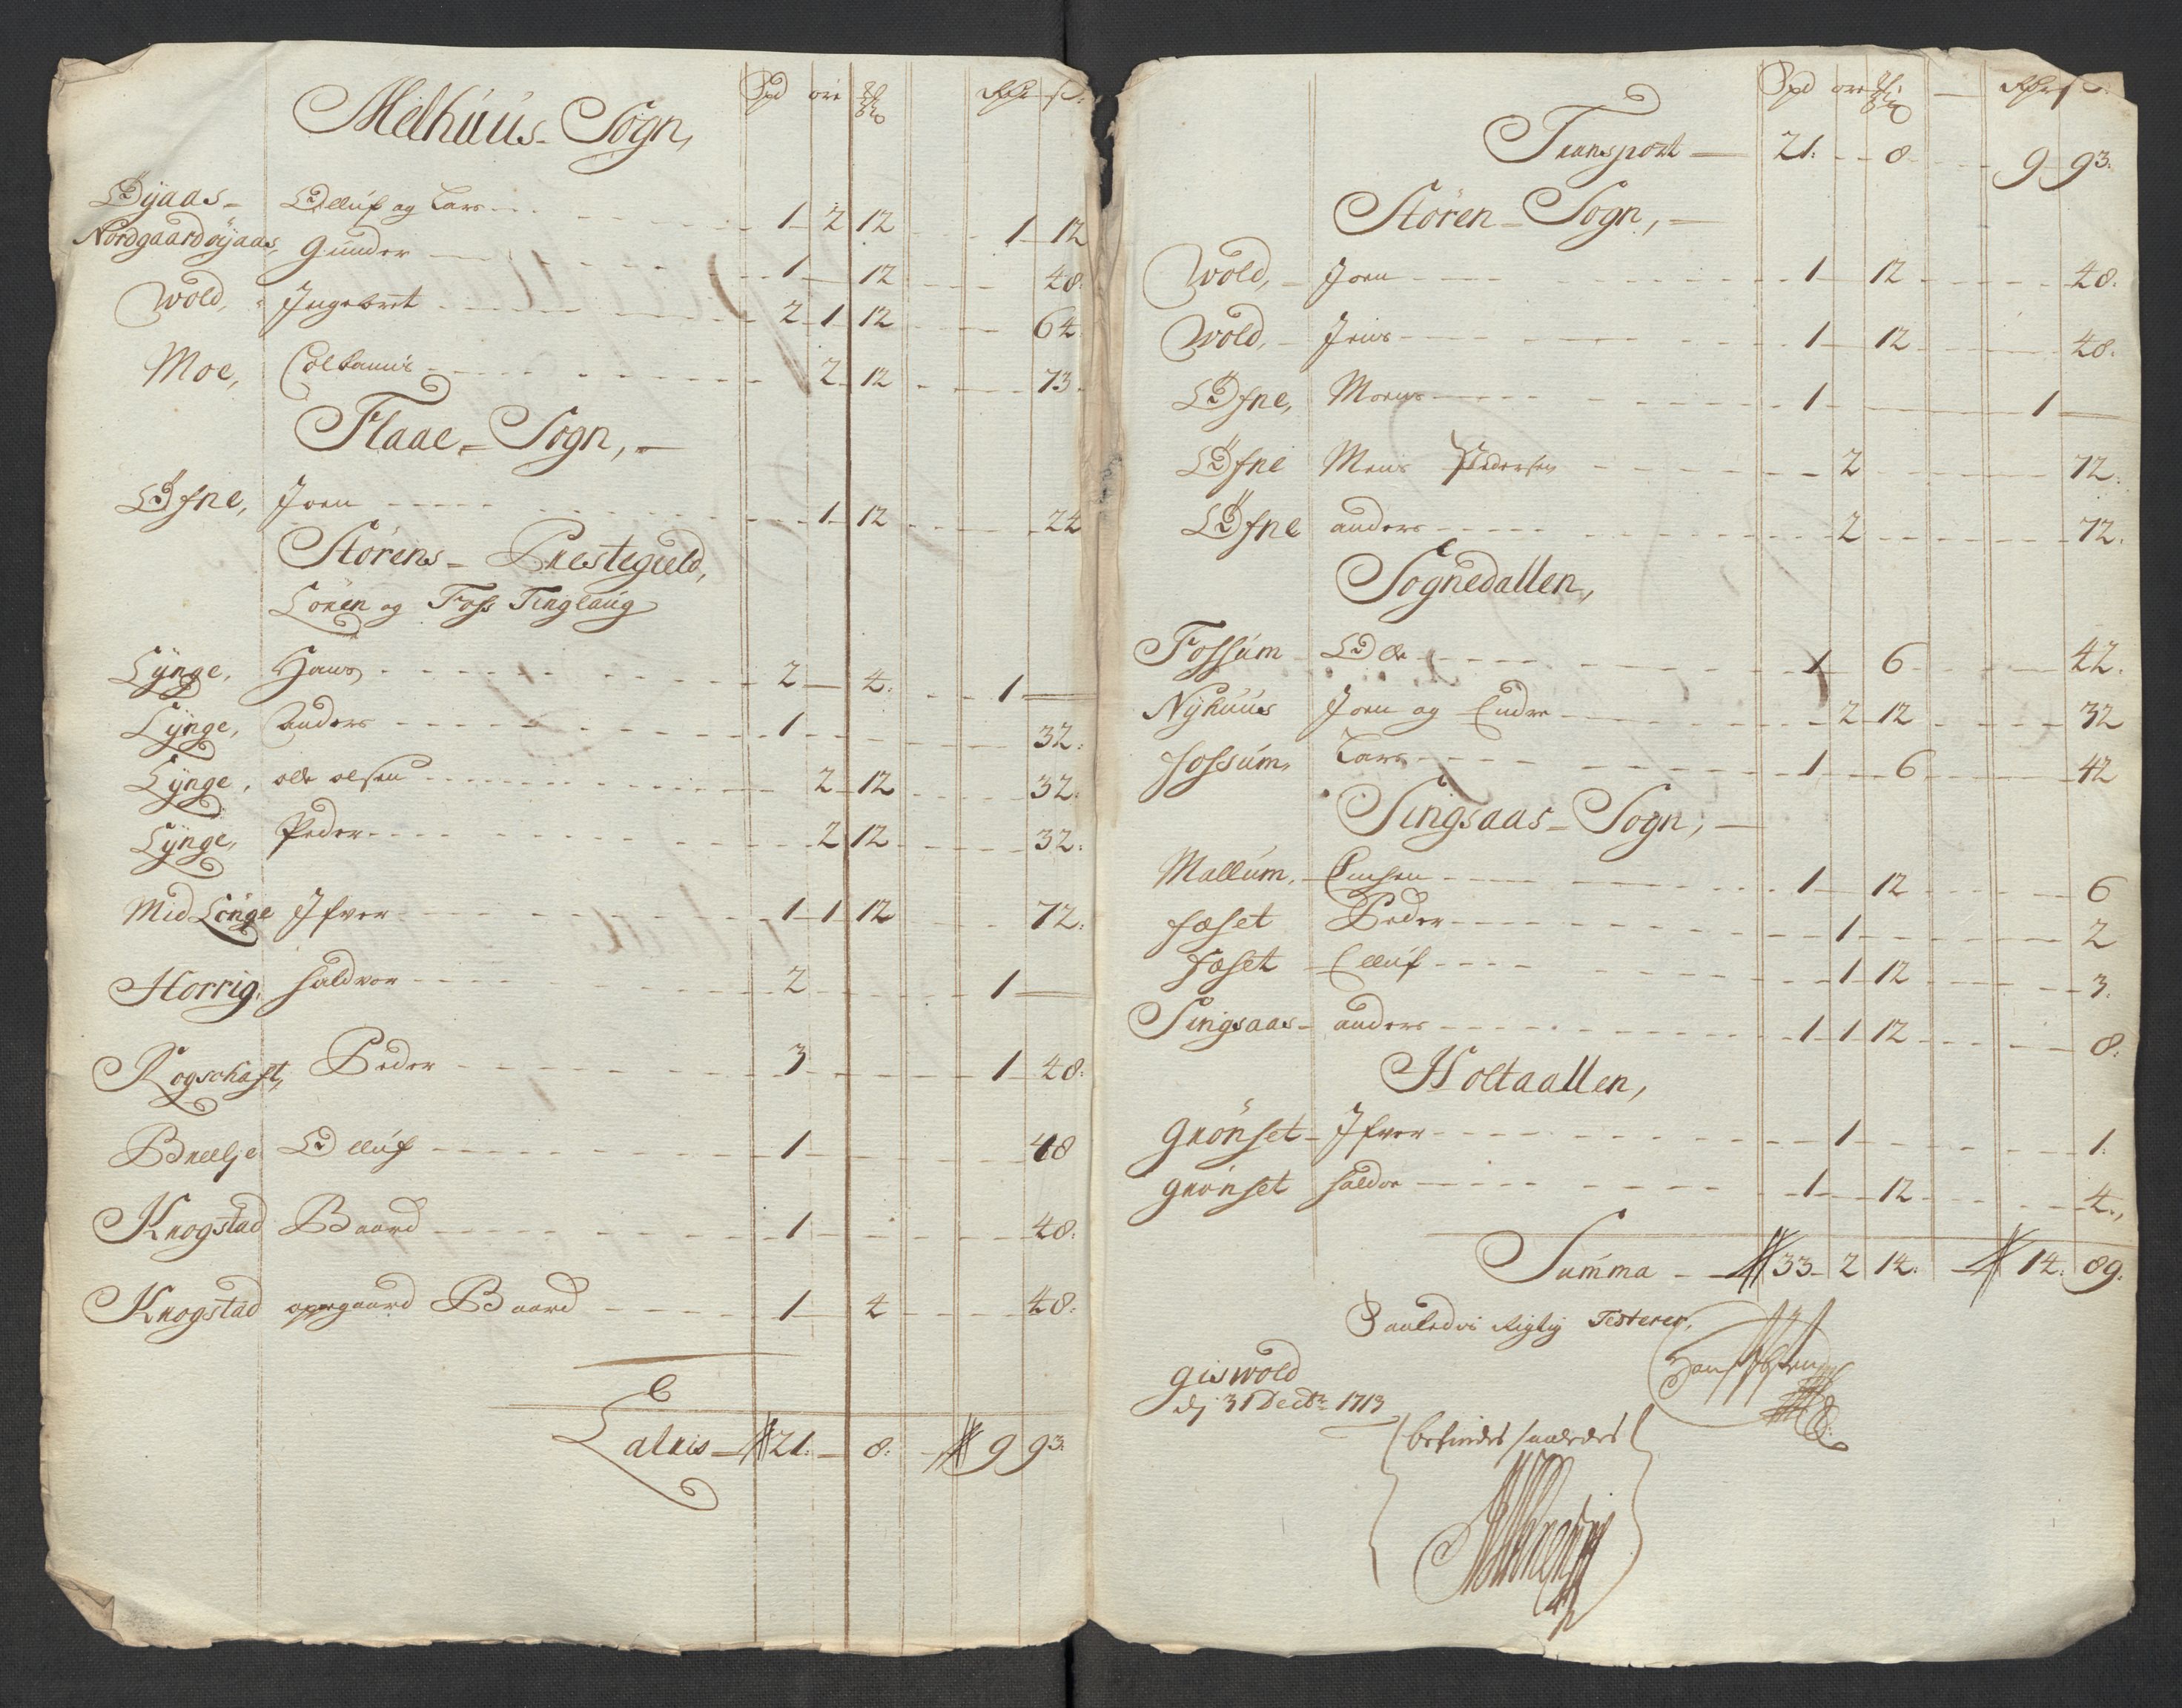 Spd ore Rdr s:
Melhuus Sogn,
Øyaas - Olluf og Lars 1 2 12 1 12
Nordgaard øyaas, Gunder 1 12 48.
Wold, Ingebret 2 1 12 64
Moe, 2 12 73.
Flaae - Sogn,
Øfne, Joen 1 12 24
Störens - Prestegield,
Lönen og Foss Tinglaug
Lÿnge, Hans 2 4. 1
Lÿnge, Anders 1 32.
Lÿnge, ole olsen 2 12 32.
Lÿnge, Peder 2 12 32.
Mid Lönge Ifver 1 1 12 72.
Horrig, haldvor 2 1
Rogschaft, Peder 3 1 48.
Breelje Olluf 1 48
Krogstad Baard 1 48.
Krogstad opegaard Baard 1 4 48.
Latris 21. 8. 9 93.
Spd ore Rdr s:
Transport 21. 8 9 93.
Stören - Sogn,
Wold, Joen 1 12 48.
Wold, Jens 1 12 48.
Øfne, Mons 1 1
Øfne Mons Pedersen 2 72.
Øfne anders 2 72.
Sognedallen,
Fossum Ole 1 6 42.
Nyhuus Joen og Endre 2 12 32
fossum, Lars 1 6 42
Singsaas - Sogn,
Mallum, 1 12 6
foset Peder 1 2
foset Elluf 1 12 3.
Singsaas - anders 1 1 12 8.
Holtaallen,
grönset - Ifver 1 1.
grönset haldor 1 12 4.
Summa 33 2 14. 14. 89.
Saaledis Rigtig Testerer,
giswold
dj 31 Decbr 1713
befindes saaledes